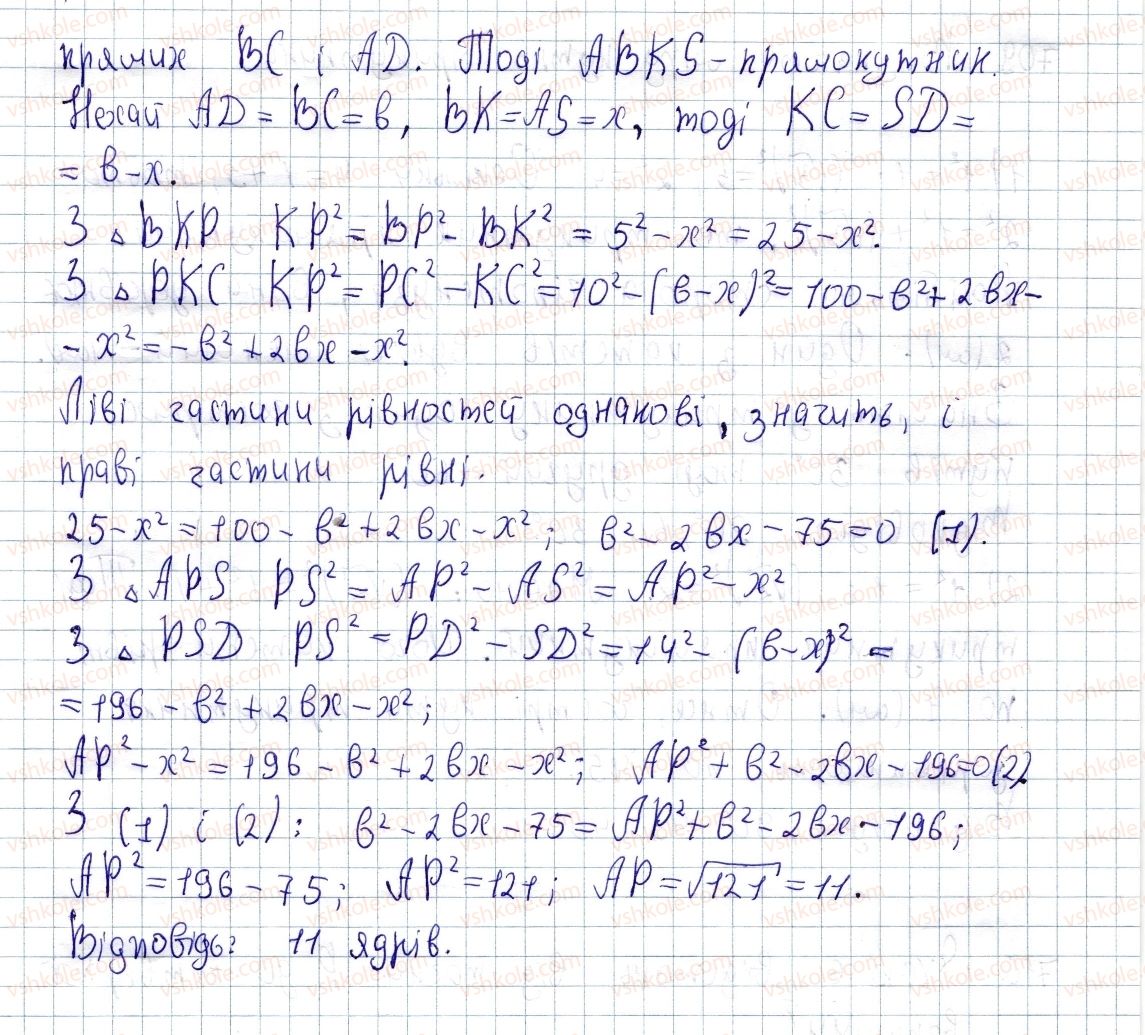 прямих BC і AD. Тоді ABKS – прямокутник.
Нехай AD = BC = в, BK = AS = x, тоді KC = SD =
= в – x.
З △ BKP KP² = BP² – BK² = 5² – x² = 25 – x².
З △ PKC KP² = PC² – KC² = 10² – (в – x)² = 100 – в² + 2вx –
– x² = – в² + 2вx – x².
Ліві частини рівностей однакові, значить, і
праві частини рівні.
25 – x² = 100 – в² + 2вx – x²; в² – 2вx – 75 = 0 (1).
З △ APS PS² = AP² – AS² = AP² – x²
З △ PSD PS² = PD² – SD² = 14² – (в – x)² =
= 196 – в² + 2вx – x²;
AP² – x² = 196 – в² + 2вx – x²; AP² + в² – 2вx – 196 = 0 (2).
З (1) і (2): в² – 2вx – 75 = AP² + в² – 2вx – 196;
AP² = 196 – 75; AP² = 121; AP = √121 = 11.
Відповідь: 11 ядрів.